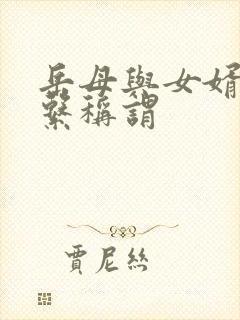 岳母與女婿
繫稱謂
賈尼絲